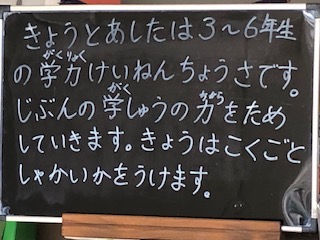 きょうとあしたは3~6年生
の学力けいねんちょうさです。
じぶんの学しゅうの力をため
していきます。きょうはこくごと
しゃかいかをうけます。